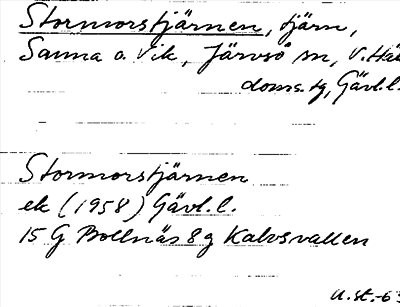 Stormorstjärnen, tjärn,
Sanna o. Vik, Järvsö sn, V. Häl
doms. tg, Gävl. l.
Stormorstjärnen
ek (1958) Gävl. l.
15 G Bollnäs 8 g Kalvsvallen
U. st. -63